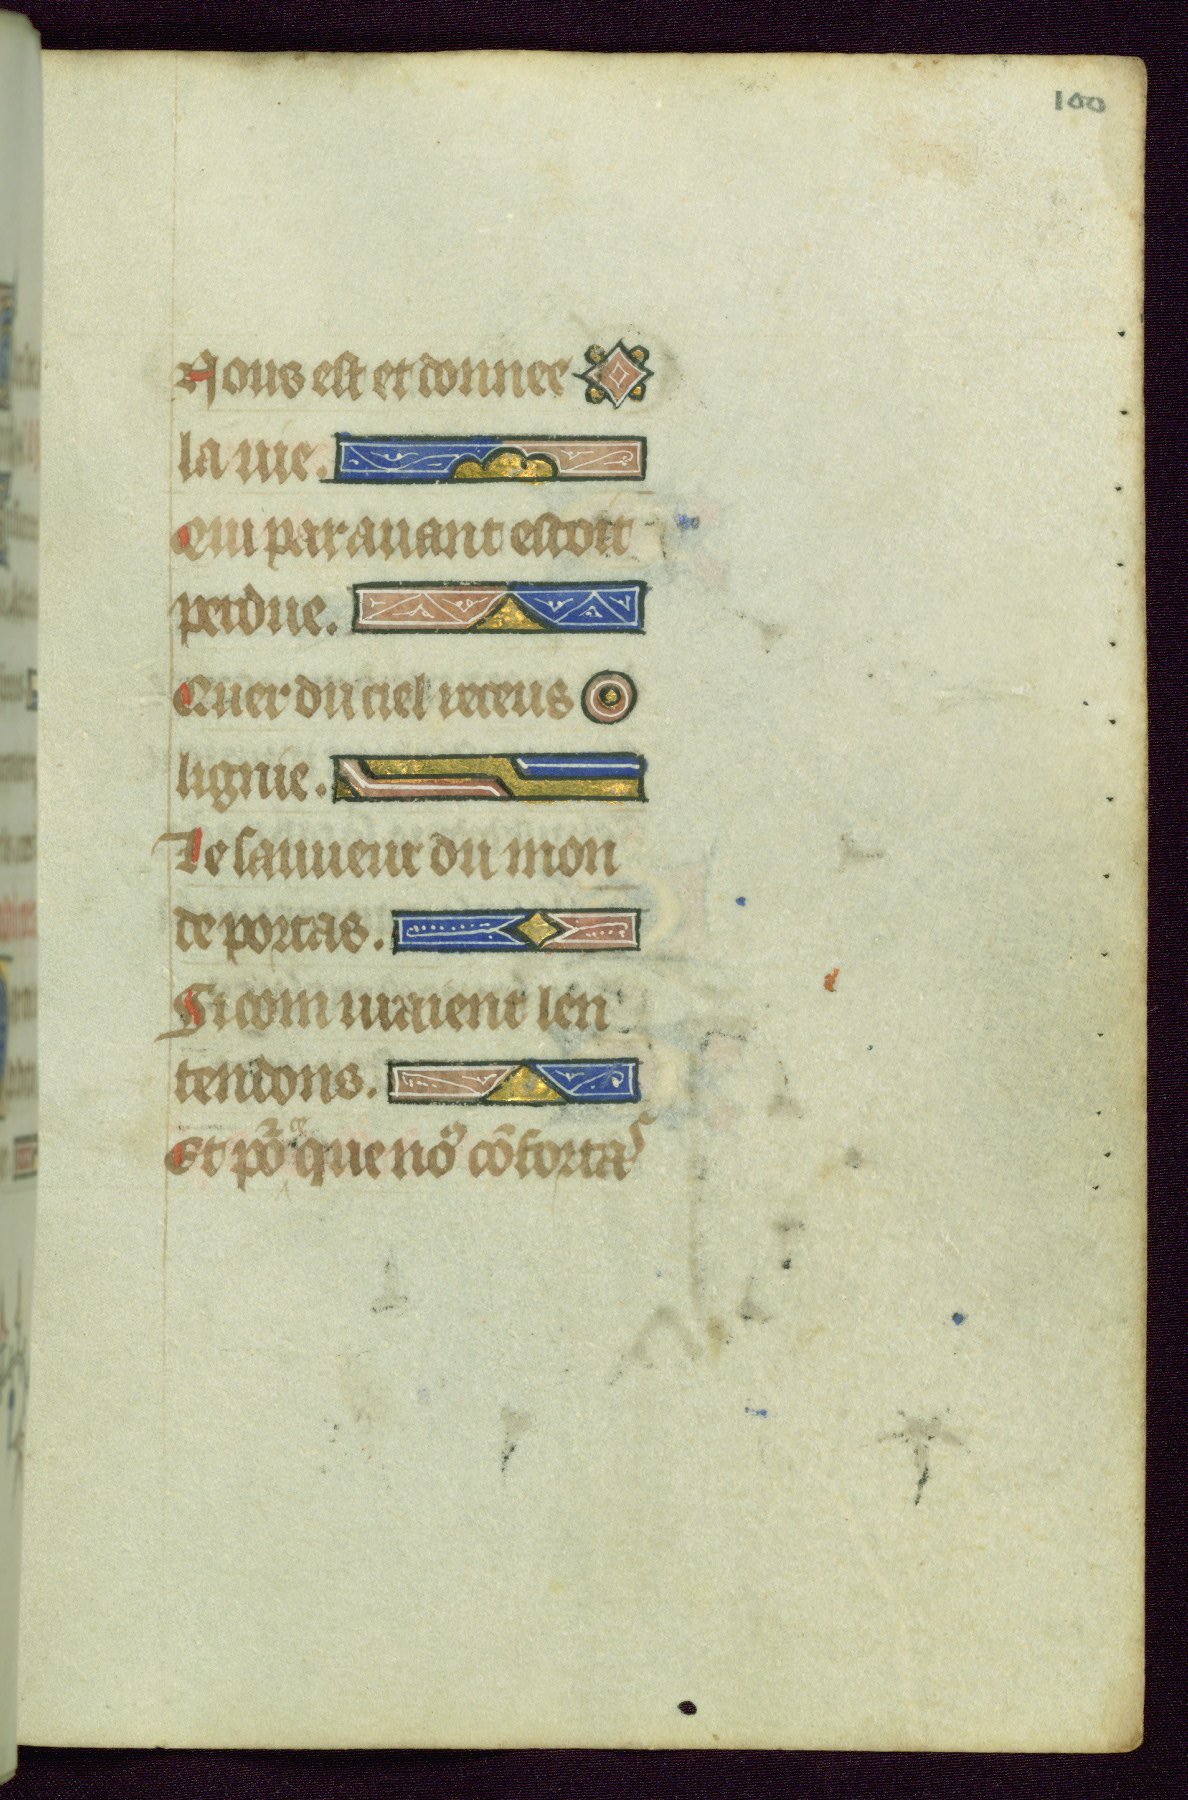 100
Nous est et donnee
la uie.
Qui par auant estoit
perdue.
Quer du ciel receus
lignie.
Le sauueur du mon
de portas.
Si com uraient len
tendons.
Et põ que noꝰ cõfortas